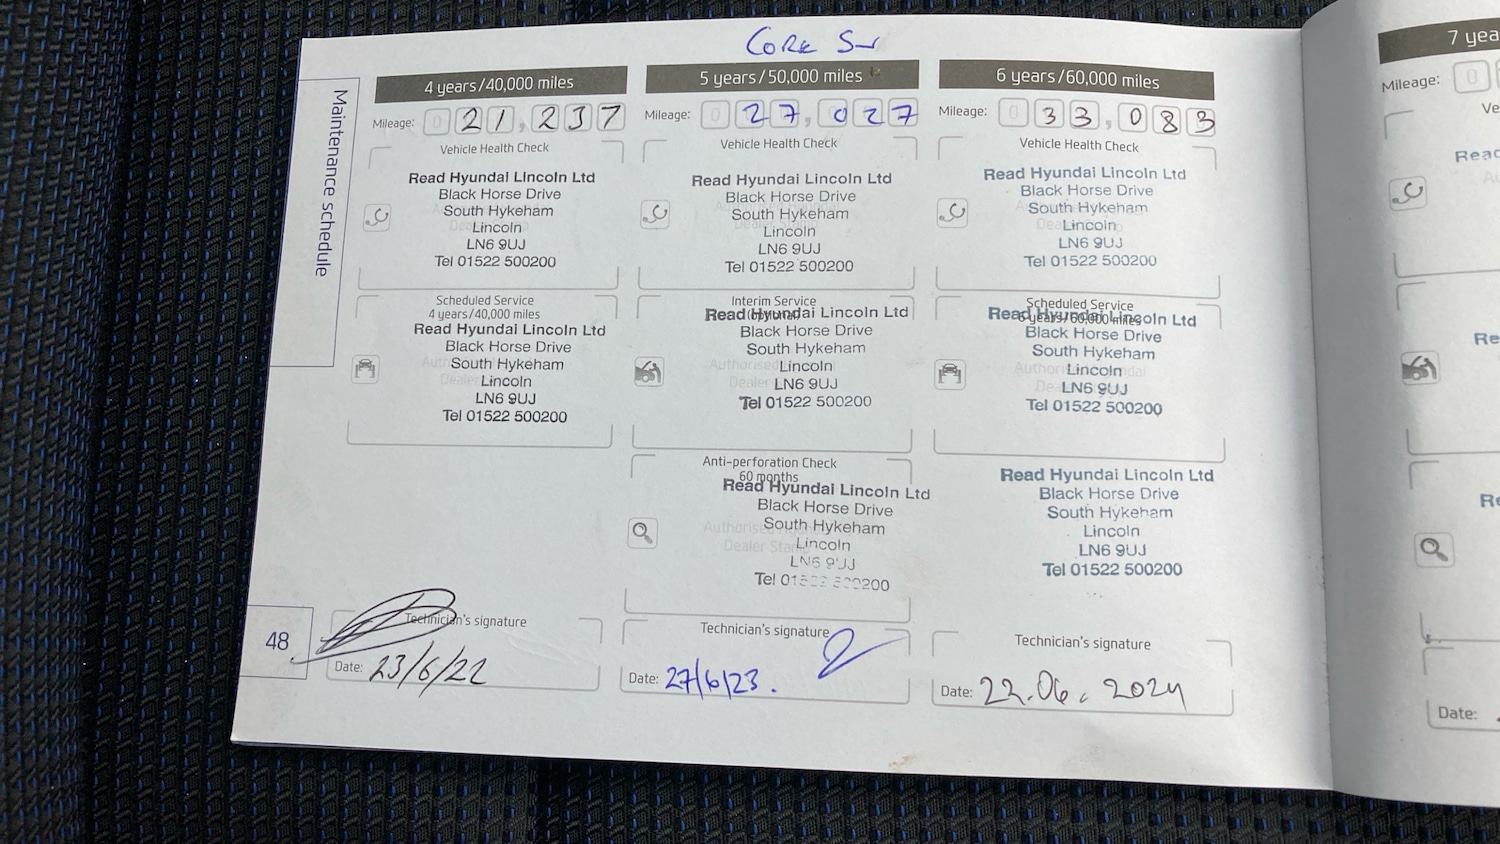 CORE
Maintenance schedule
4 years/40,000 miles
Mileage: 0 21,237
Vehicle Health Check
Read Hyundai Lincoln Ltd
Black Horse Drive
South Hykeham
Lincoln
LN6 9UJ
Tel 01522 500200
Scheduled Service
4 years/40,000 miles
Read Hyundai Lincoln Ltd
Black Horse Drive
South Hykeham
Lincoln
LN6 9UJ
Tel 01522 500200
Technician's signature
Date: 23/6/22
48
5 years/50,000 miles
Mileage: 0 27,027
Vehicle Health Check
Read Hyundai Lincoln Ltd
Black Horse Drive
South Hykeham
Lincoln
LN6 9UJ
Tel 01522 500200
Interim Service
(optional)
Read Hyundai Lincoln Ltd
Black Horse Drive
South Hykeham
Lincoln
LN6 9UJ
Tel 01522 500200
Anti-perforation Check
60 months
Read Hyundai Lincoln Ltd
Black Horse Drive
South Hykeham
Lincoln
LN6 9UJ
Tel 01522 500200
Technician's signature
Date: 27/6/23.
6 years/60,000 miles
Mileage: 0 33,083
Vehicle Health Check
Read Hyundai Lincoln Ltd
Black Horse Drive
South Hykeham
Lincoln
LN6 9UJ
Tel 01522 500200
Scheduled Service
6 years/60,000 miles
Read Hyundai Lincoln Ltd
Black Horse Drive
South Hykeham
Lincoln
LN6 9UJ
Tel 01522 500200
Read Hyundai Lincoln Ltd
Black Horse Drive
South Hykeham
Lincoln
LN6 9UJ
Tel 01522 500200
Technician's signature
Date: 22.06.2024
7 yea
Mileage: 0
Ve
Read
Re
Re
Date: